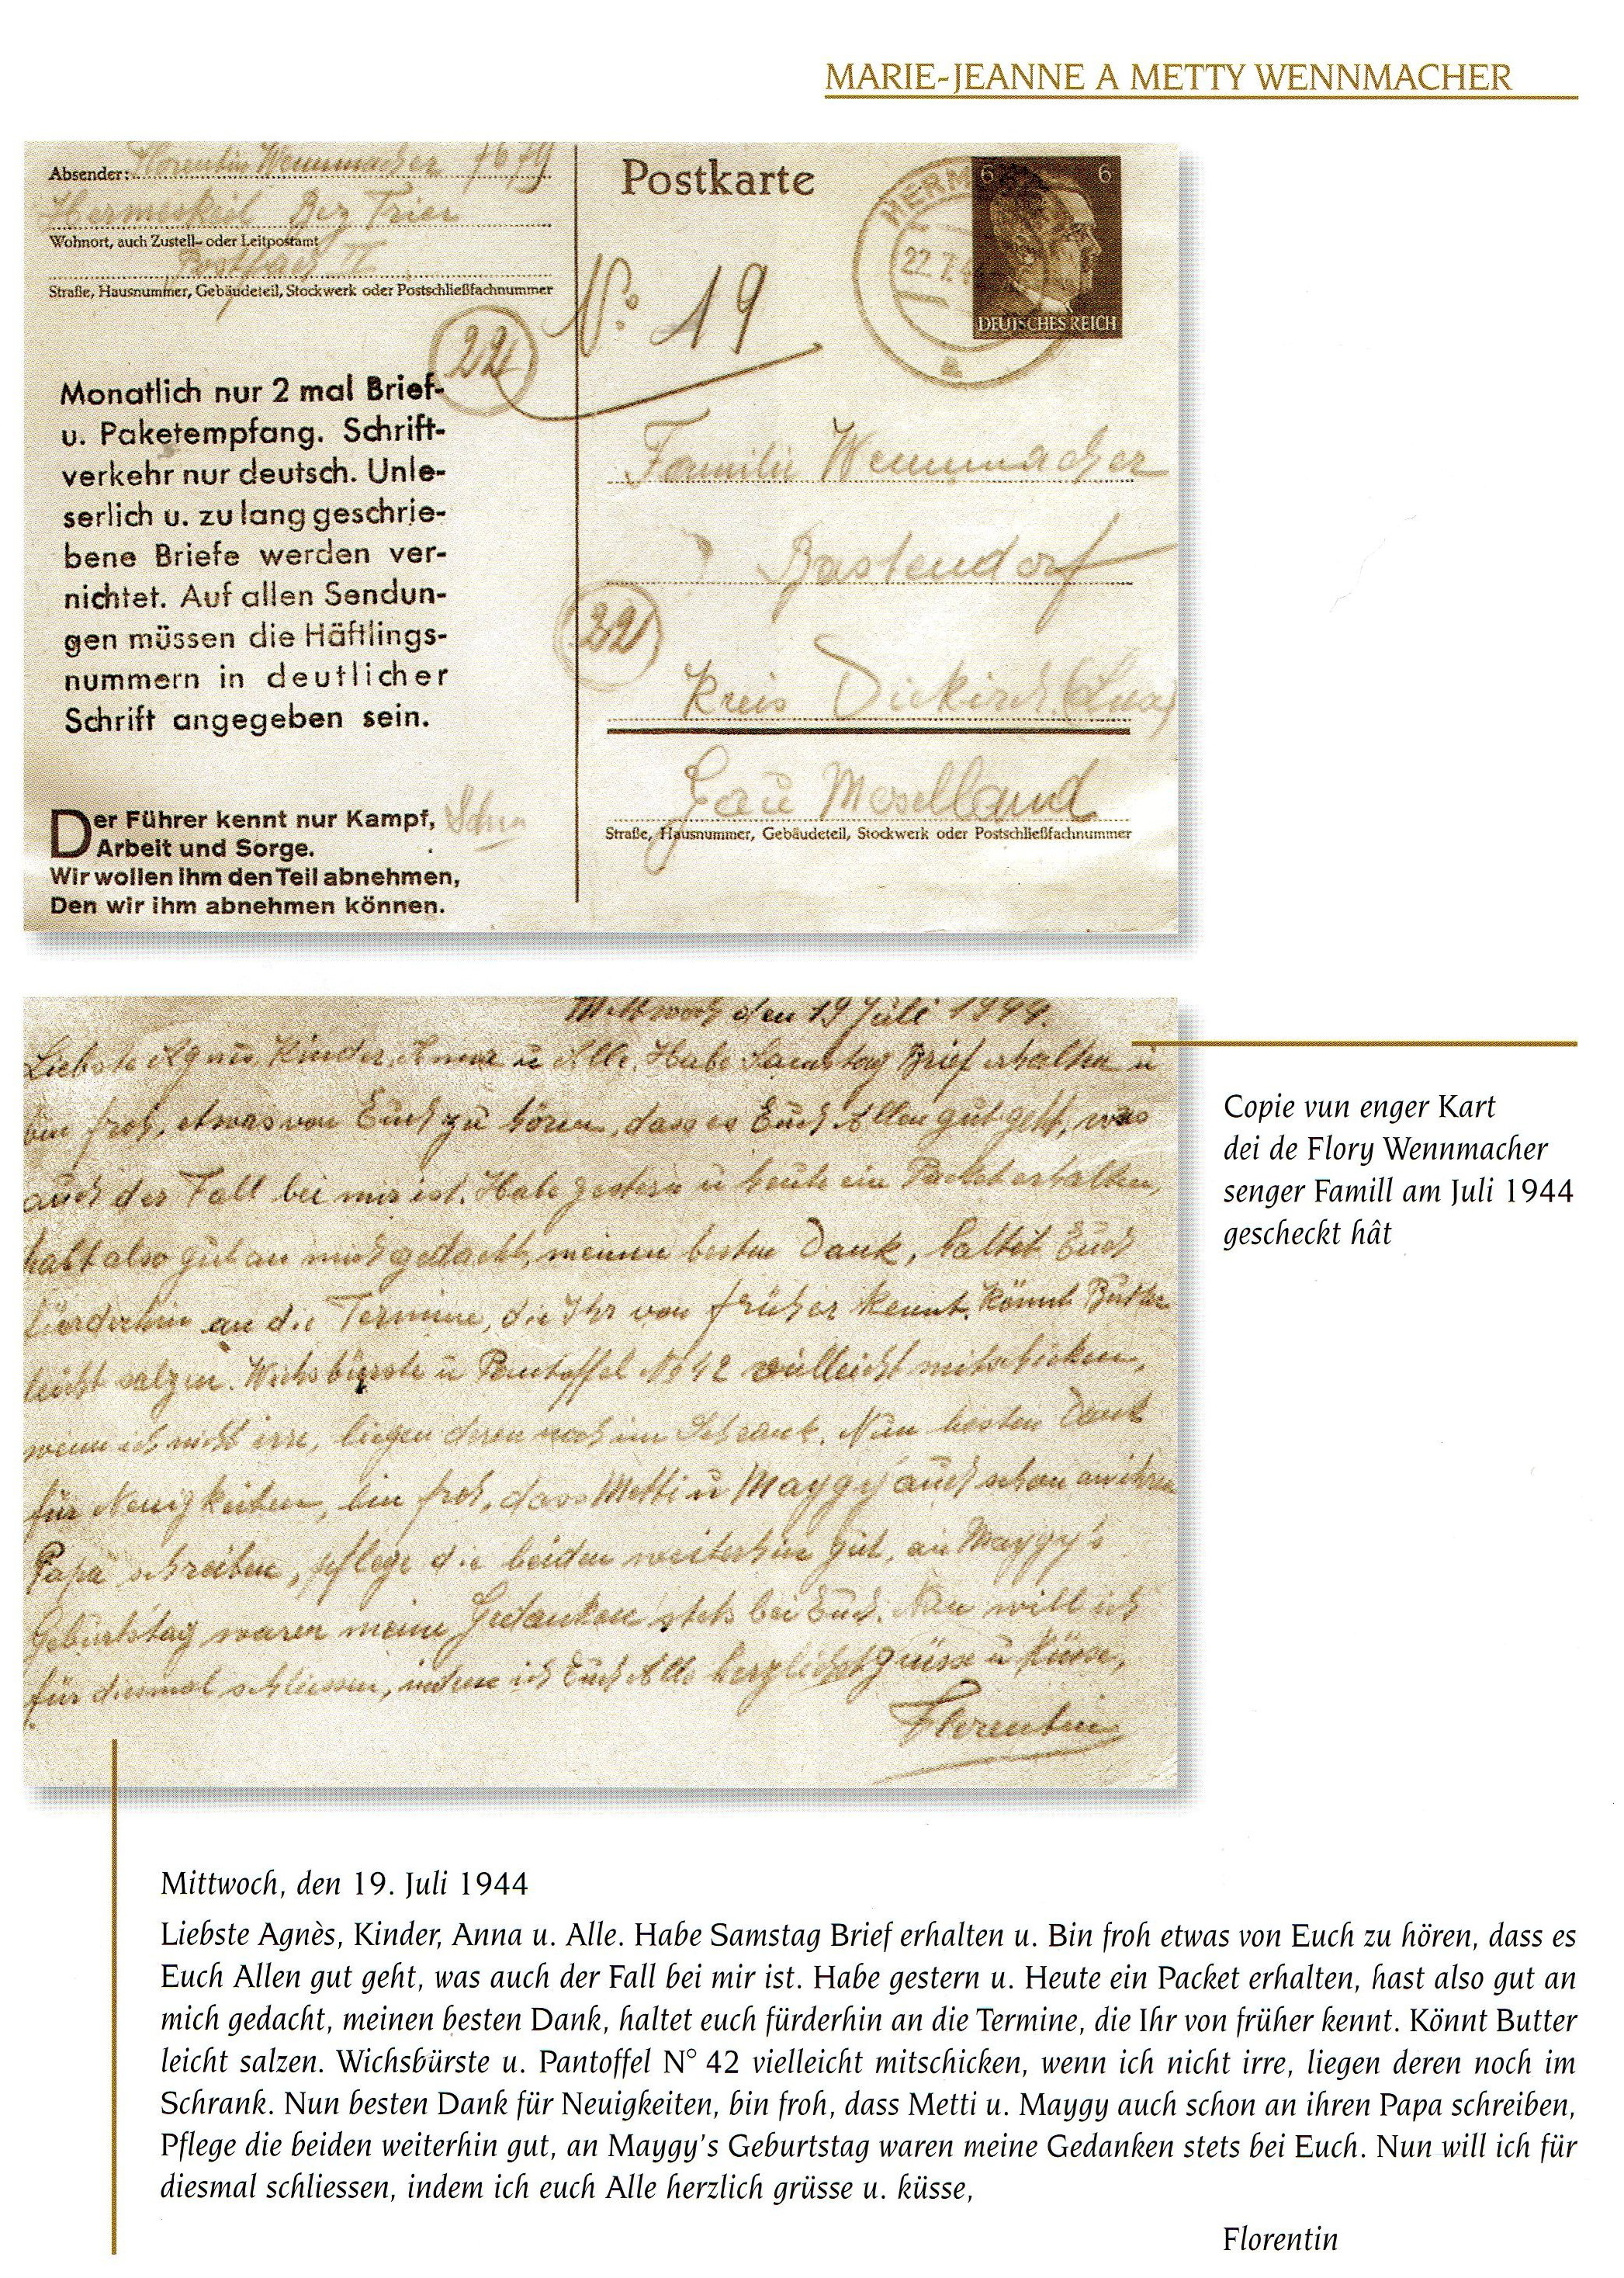 MARIE-JEANNE A METTY WENNMACHER
Absender: Florentin Wennmacher 7679
Hermeskeil Bez Trier
Wohnort, auch Zustell- oder Leitpostamt
Postfach II
Straße, Hausnummer, Gebäudeteil, Stockwerk oder Postschließfachnummer
Postkarte
HERM
22.7.4
a
6 6
DEUTSCHES REICH
No 19
22
Monatlich nur 2 mal Brief-
u. Paketempfang. Schrift-
verkehr nur deutsch. Unle-
serlich u. zu lang geschrie-
bene Briefe werden ver-
nichtet. Auf allen Sendun-
gen müssen die Häftlings-
nummern in deutlicher
Schrift angegeben sein.
Der Führer kennt nur Kampf,
Arbeit und Sorge.
Wir wollen ihm den Teil abnehmen,
Den wir ihm abnehmen können.
Familie Wennmacher
Bastendorf
22
Kreis Diekirch (Lux)
Gau Moselland
Straße, Hausnummer, Gebäudeteil, Stockwerk oder Postschließfachnummer
Mittwoch den 19 Juli 1944.
Liebste Agnès, Kinder, Anna u Alle. Habe Samstag Brief erhalten u
bin froh, etwas von Euch zu hören, dass es Euch Allen gut geht, was
auch der Fall bei mir ist. Habe gestern u heute ein Packet erhalten,
hast also gut an mich gedacht, meinen besten Dank, haltet Euch
fürderhin an die Termine, die Ihr von früher kennt. Könnt Butter
leicht salzen. Wichsbürste u Pantoffel No 42 vielleicht mitschicken,
wenn ich nicht irre, liegen deren noch im Schrank. Nun besten Dank
für Neuigkeiten, bin froh, dass Metti u Maygy auch schon an ihren
Papa schreiben, pflege die beiden weiterhin gut, an Maygy's
Geburtstag waren meine Gedanken stets bei Euch. Nun will ich
für diesmal schliessen, indem ich Euch Alle herzlichst grüsse u küsse,
Florentin
Copie vun enger Kart
dei de Flory Wennmacher
senger Famill am Juli 1944
gescheckt hât
Mittwoch, den 19. Juli 1944
Liebste Agnès, Kinder, Anna u. Alle. Habe Samstag Brief erhalten u. Bin froh etwas von Euch zu hören, dass es
Euch Allen gut geht, was auch der Fall bei mir ist. Habe gestern u. Heute ein Packet erhalten, hast also gut an
mich gedacht, meinen besten Dank, haltet euch fürderhin an die Termine, die Ihr von früher kennt. Könnt Butter
leicht salzen. Wichsbürste u. Pantoffel N° 42 vielleicht mitschicken, wenn ich nicht irre, liegen deren noch im
Schrank. Nun besten Dank für Neuigkeiten, bin froh, dass Metti u. Maygy auch schon an ihren Papa schreiben,
Pflege die beiden weiterhin gut, an Maygy's Geburtstag waren meine Gedanken stets bei Euch. Nun will ich für
diesmal schliessen, indem ich euch Alle herzlich grüsse u. küsse,
Florentin